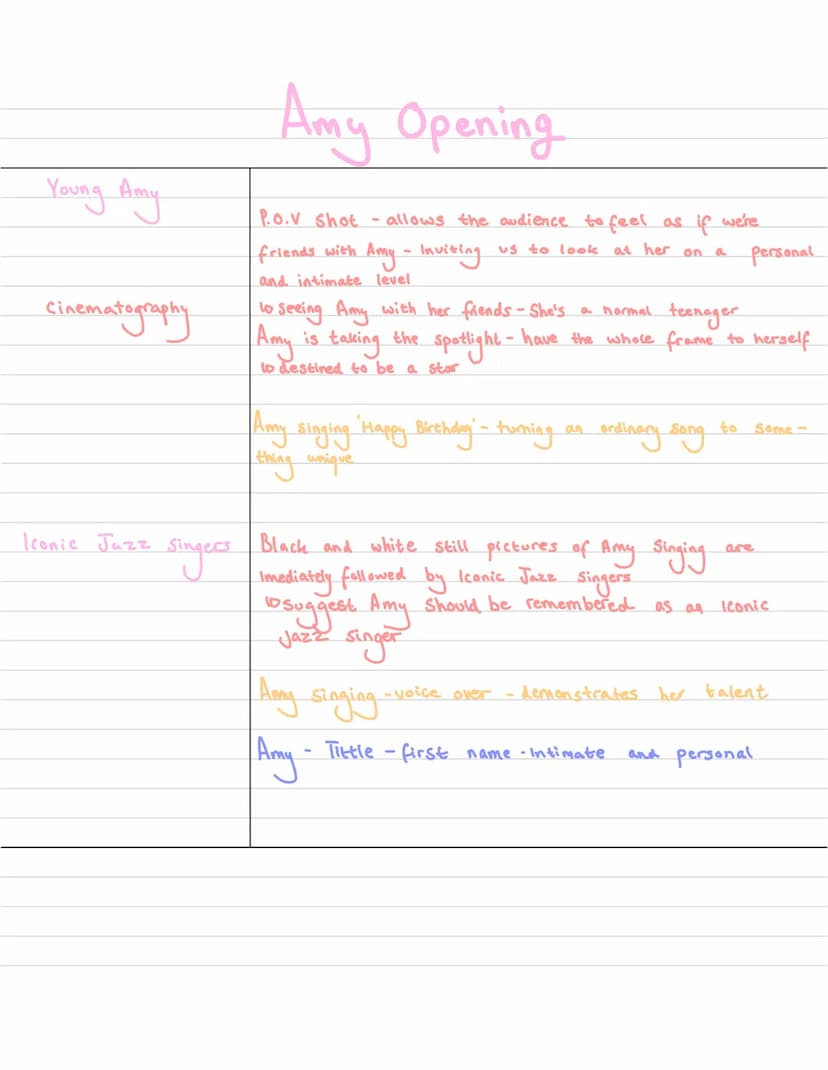 Amy Opening
Young Amy
P.O.V Shot - allows the audience to feel as if we're
friends with Amy - Inviting us to look at her on a personal
and intimate level
Cinematography
↳ seeing Amy with her friends - She's a normal teenager
Amy is taking the spotlight - have the whole frame to herself
↳ destined to be a star
Amy singing 'Happy Birthday' - turning an ordinary song to some-
thing unique
Iconic Jazz singers
Black and white still pictures of Amy Singing are
Imediately followed by Iconic Jazz singers
↳ suggest Amy should be remembered as an iconic
Jazz singer
Amy singing - voice over - demonstrates her talent
Amy - Tittle - first name - Intimate and personal